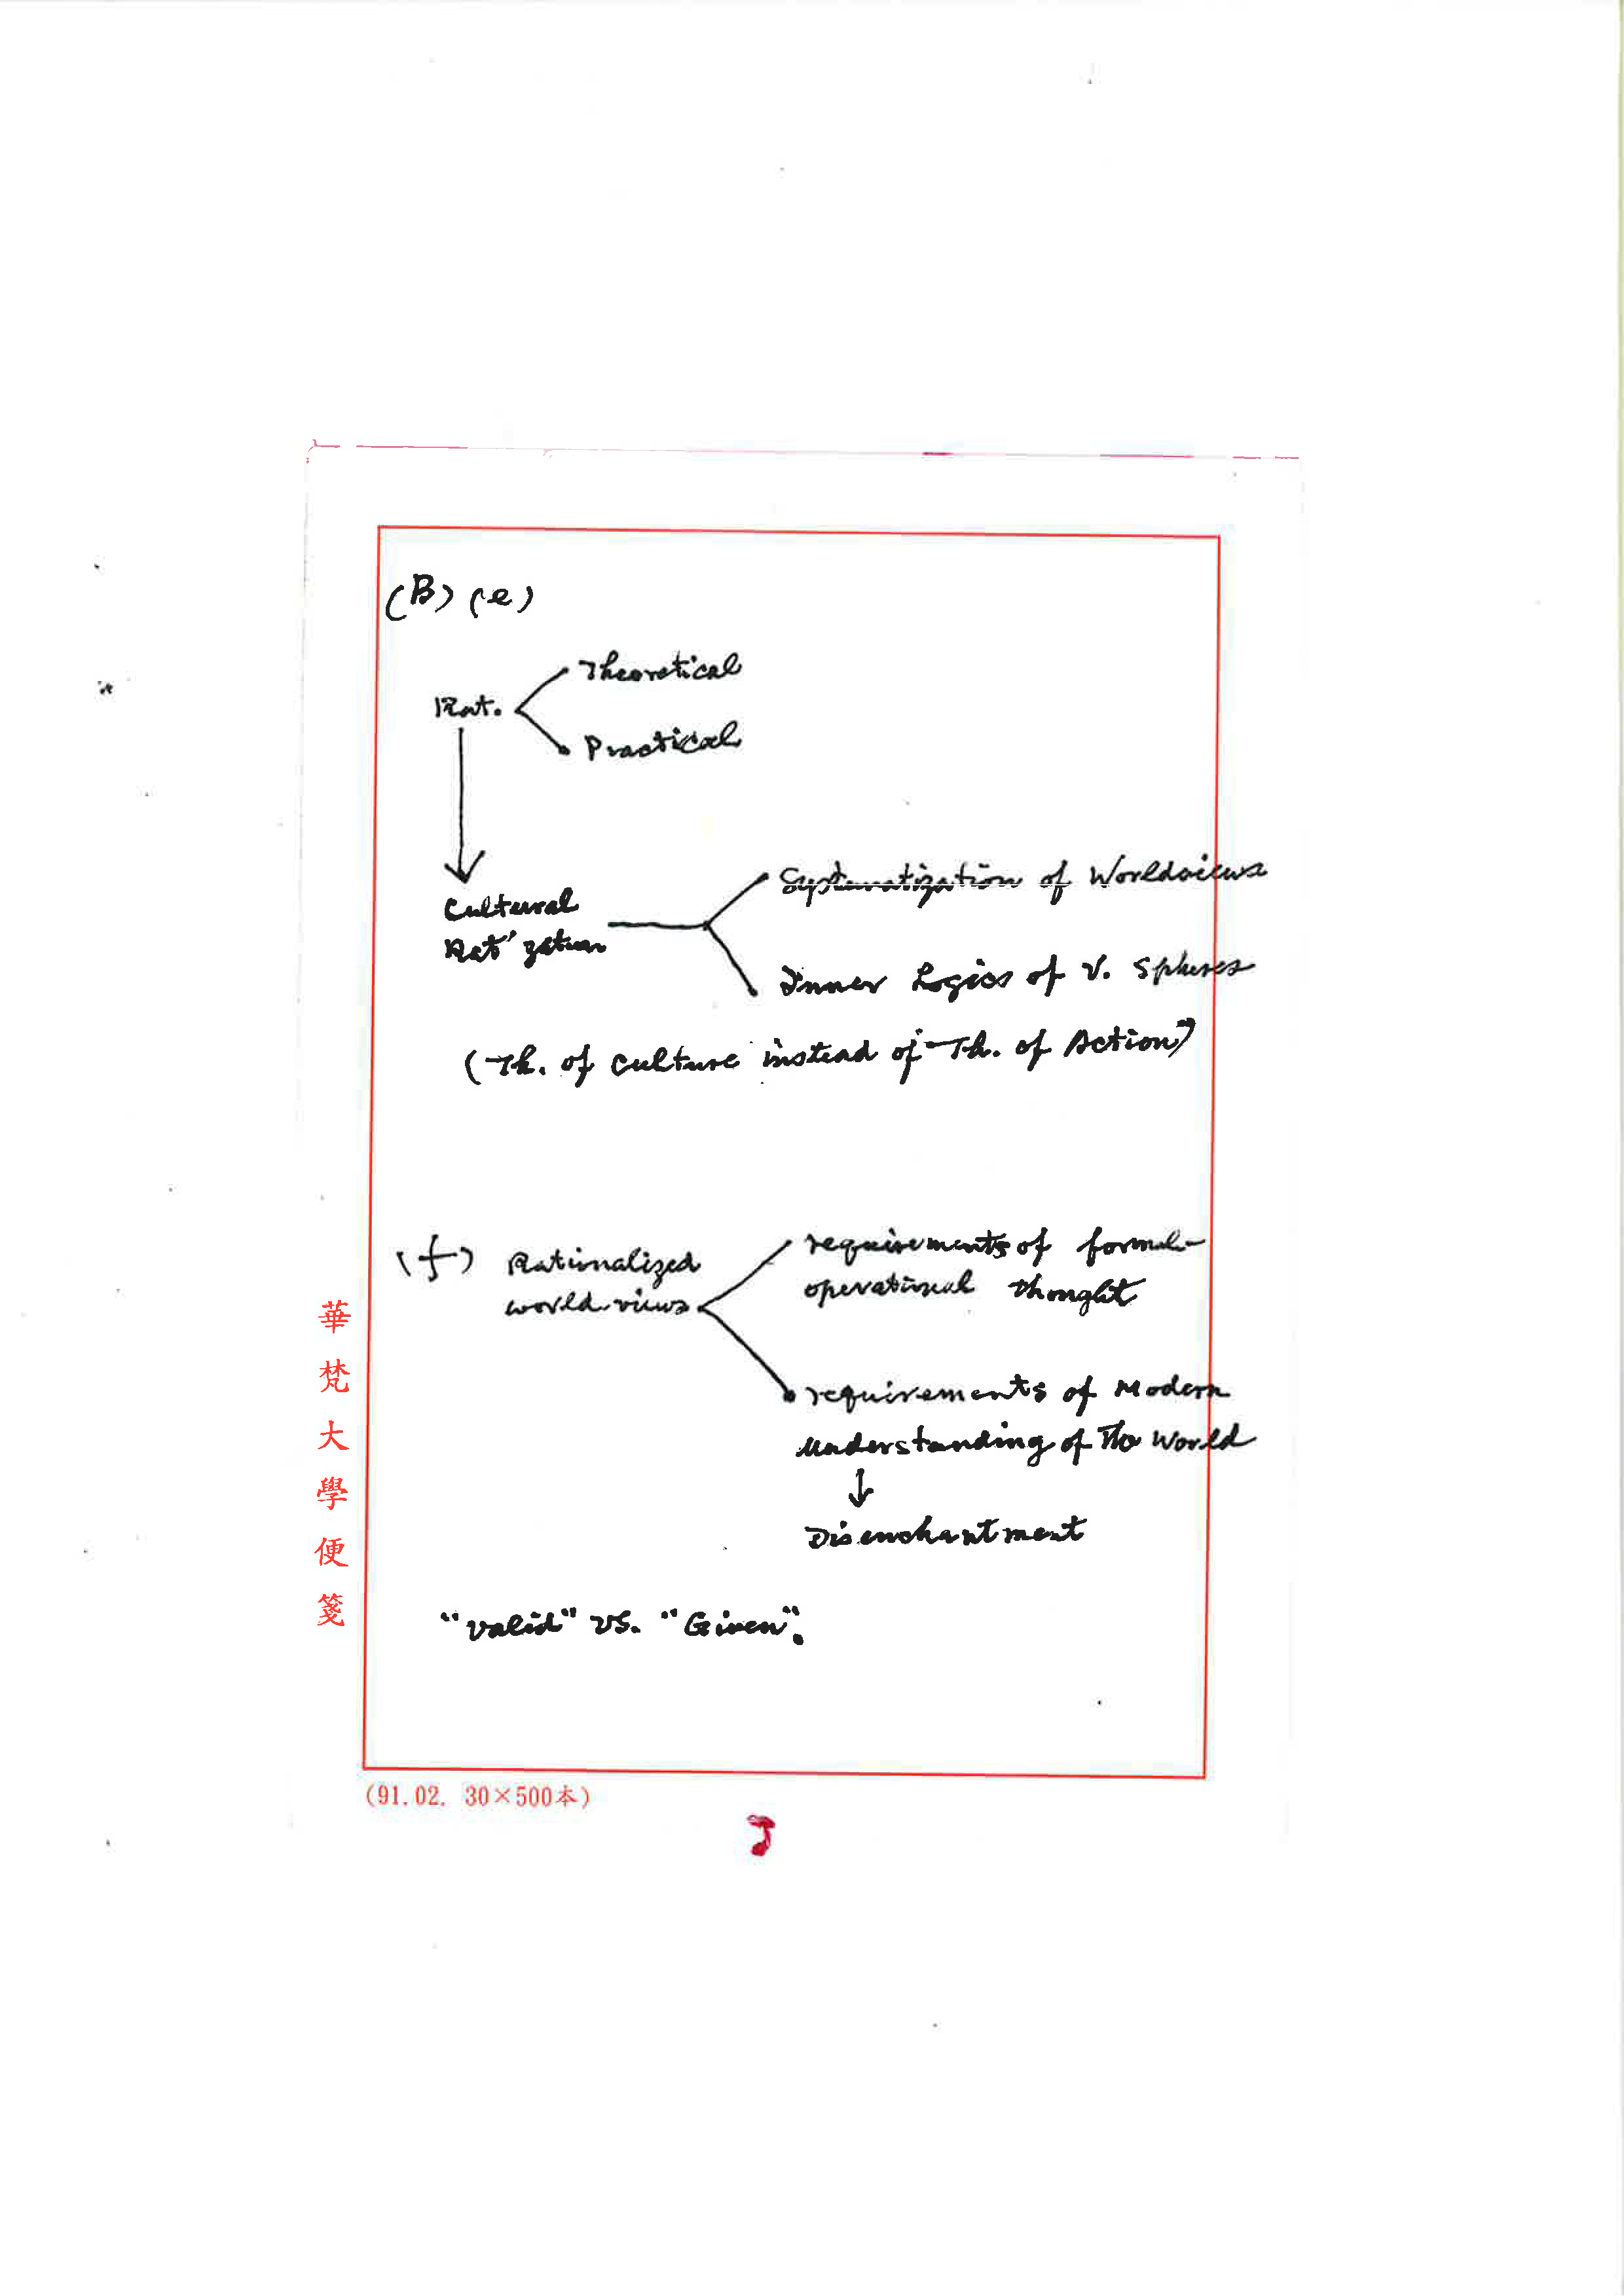 (B) (e)
Theoretical
Rat.
Practical
Systematization of Worldviews
Cultural
Rat'zation
Inner Logics of V. Spheres
(Th. of Culture instead of Th. of Action)
(f) Rationalized
world-views
requirements of formal-
operational thought
requirements of Modern
understanding of The World
↓
Disenchantment
"Valid" vs. "Given".
華梵大學便箋
(91.02. 30×500本)